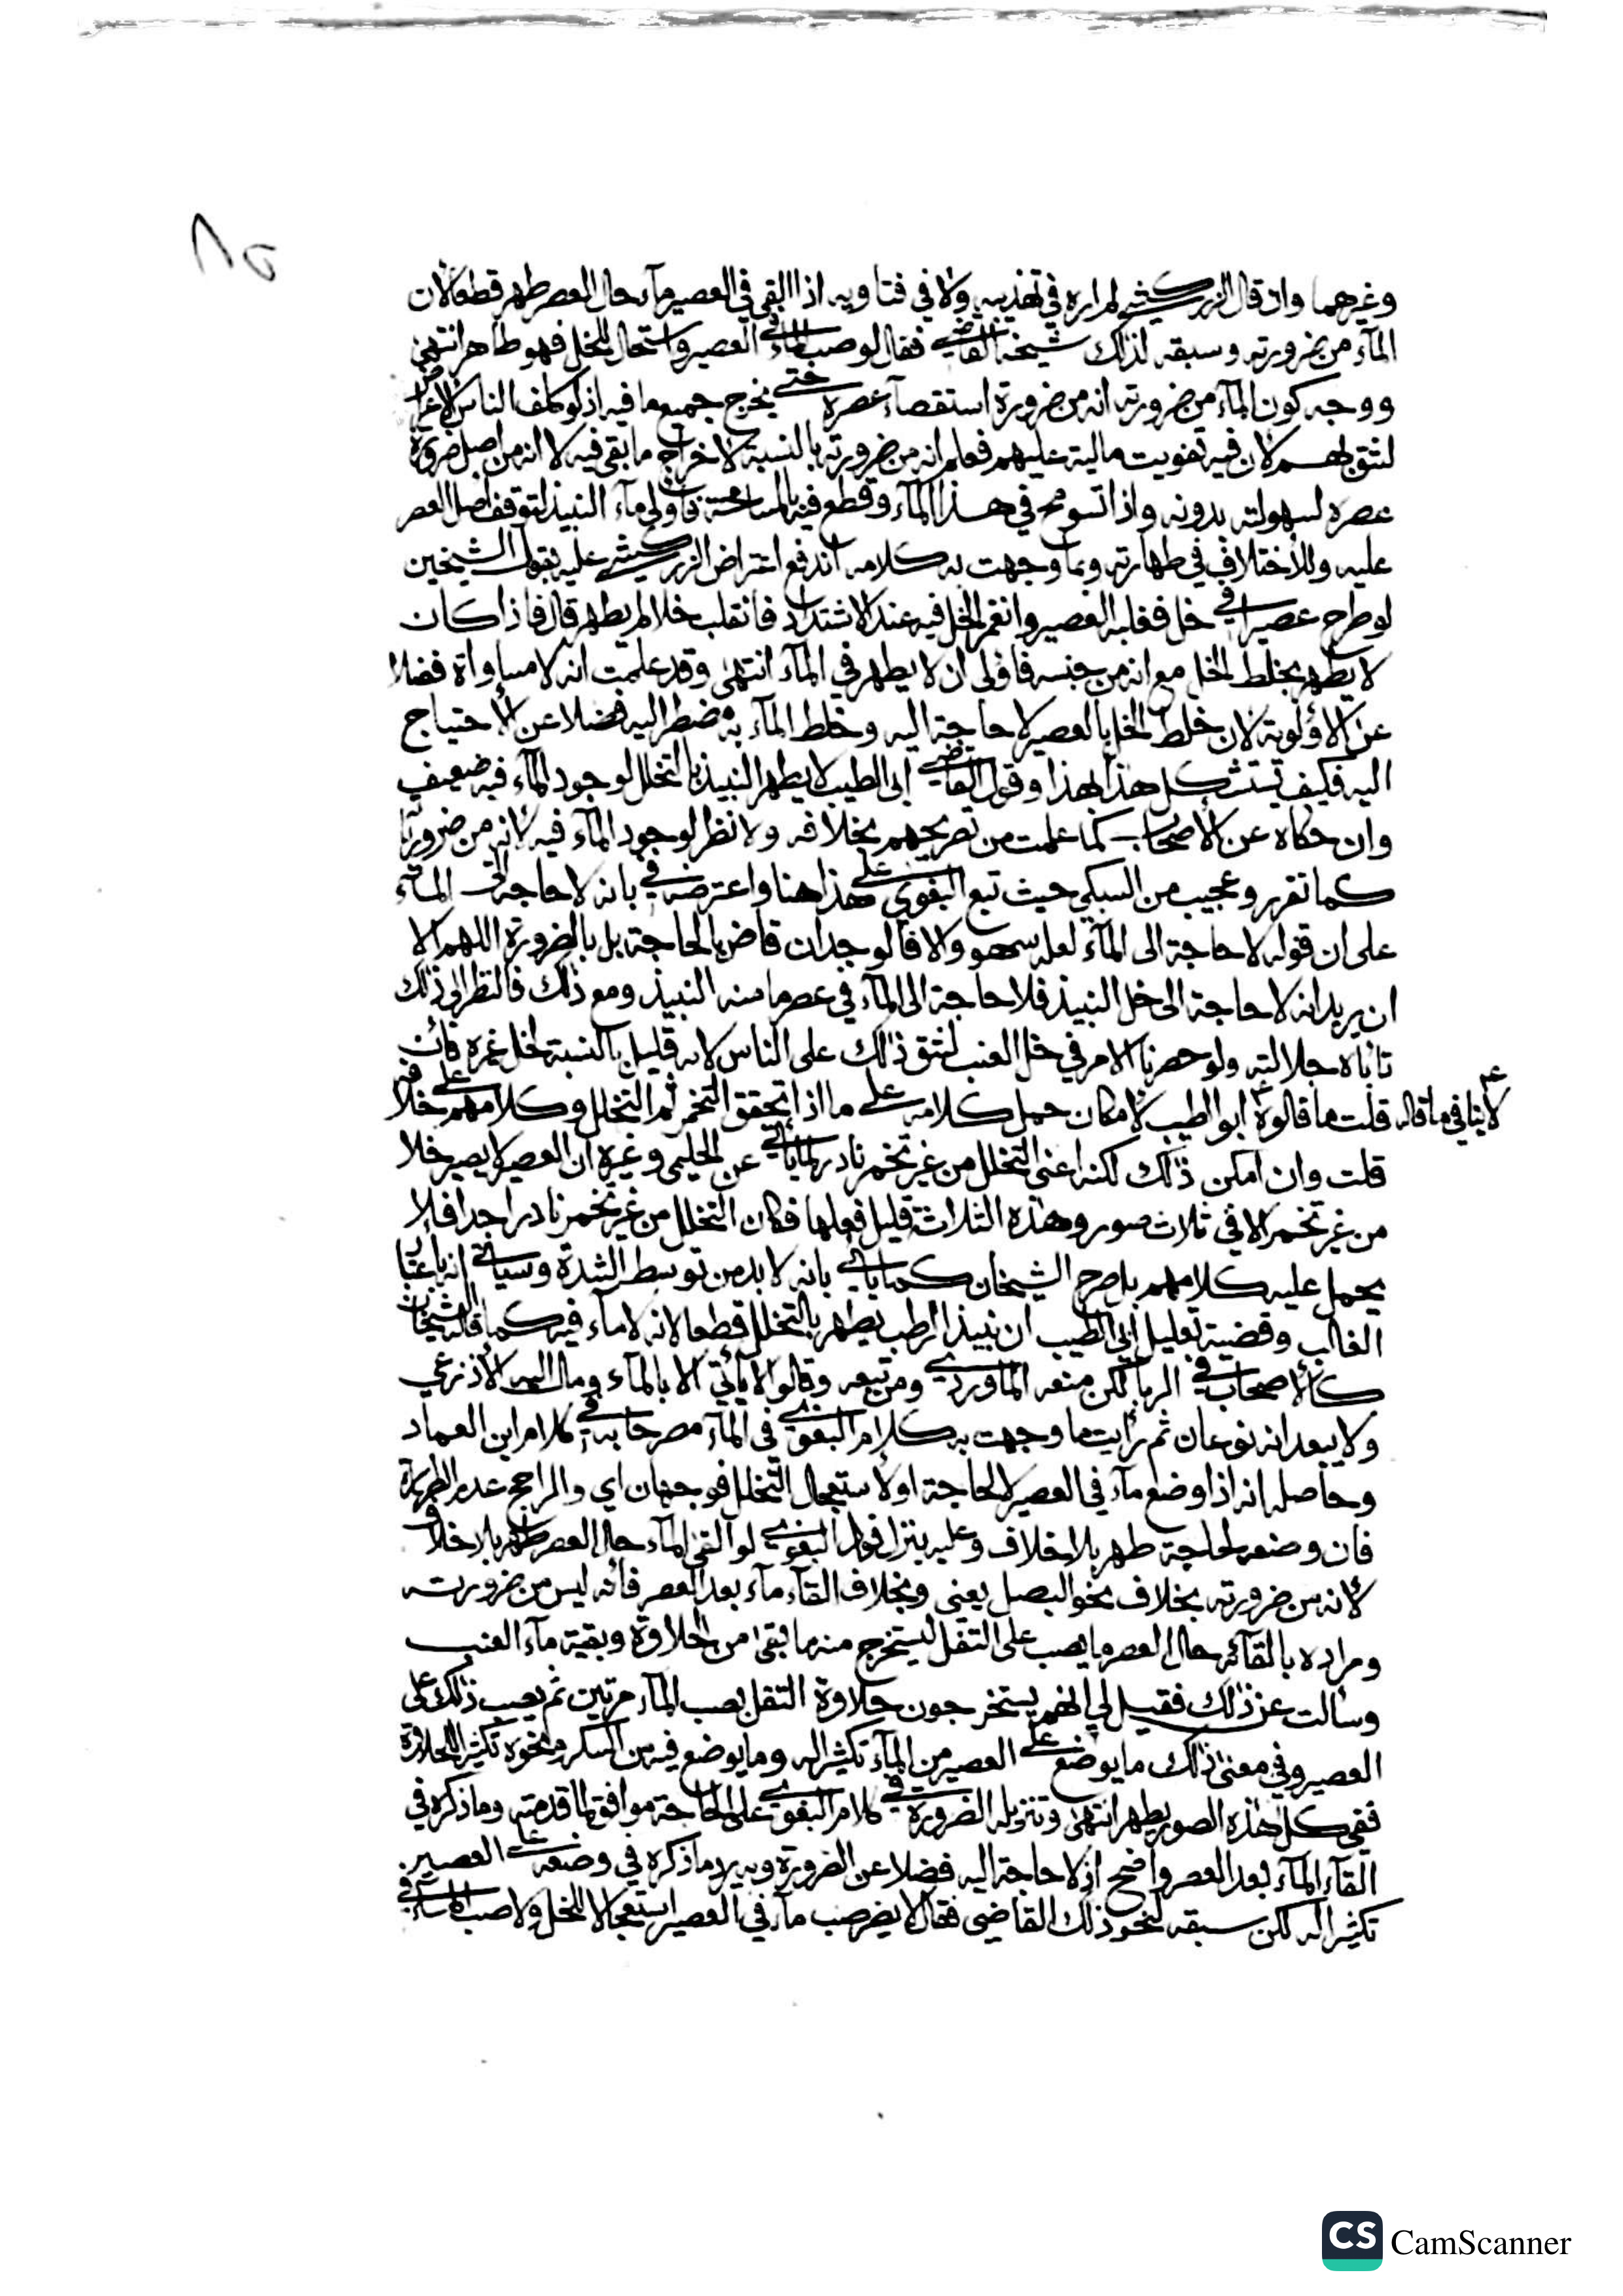 ٨٥
وغيرهما وان قال الزركشي لم اره في تهذيبه ولا في فتاويه اذا القي في العصير ماء حال العصر طهر قطعا لان
الماء من ضرورته وسبقه لذلك شيخه القاضي فقال لو صب الماء في العصير واستحال للخل فهو طاهر انتهى
ووجه كون الماء من ضرورته انه من ضرورة استقصاء عصره حتى يخرج جميع ما فيه اذ لو كلف الناس الاعراض
لشق لهم لان فيه تفويت مالية عليهم فعلم انه من ضرورته بالنسبة لاخراج ما بقي فيه لا انه من اصل ضرورة
عصره لسهولته بدونه واذا تسومح في هذا الماء وقطع فيه بالمسامحة فاولى ماء النبيذ لتوقف اصل العصر
عليه وللاختلاف في طهارته وبما وجهت به كلامه اندفع اعتراض الزركشي عليه بقول الشيخين
لو طرح عصيرا في خل فغلبه العصير وانغمر الخل فيه عند الاشتداد فانقلب خلا لم يطهر قال فاذا كان
لا يطهر بخلط الخل مع انه من جنسه فاولى ان لا يطهر في الماء انتهى وقد علمت انه لا مساواة فضلا
عن الاولوية لان خلط الخل بالعصير لا حاجة اليه وخلط الماء به مضطر اليه فضلا عن الاحتياج
اليه فكيف يستشكل هذا بهذا وقول القاضي ابي الطيب لا يطهر النبيذ بالتخلل لوجود الماء فيه ضعيف
وان حكاه عن الاصحاب كما علمت من تصريحهم بخلافه ولا نظر لوجود الماء فيه لانه من ضرورته
كما تقرر وعجيب من السبكي حيث تبع البغوي على هذا هنا واعترضه في بانه لا حاجة الى الماء
على ان قوله لا حاجة الى الماء لعله سهو والا فالوجدان قاض بالحاجة بل بالضرورة اللهم الا
ان يريد انه لا حاجة الى خل النبيذ فلا حاجة الى الماء في عصر ما منه النبيذ ومع ذلك فالنظر الى ذلك
تاباه جلالته ولو حصرنا الامر في خل العنب لشق ذلك على الناس لانه قليل بالنسبة لخل غيره فان
قلت ما قالوه ابو الطيب لامكان حمل كلامه على ما اذا تحقق التخمر ثم التخلل وكلامهم على خلافه
لا ينافي ما قاله
قلت وان امكن ذلك لكنه اعني التخلل من غير تخمر نادر لما ياتي عن الحليمي وغيره ان العصير لا يصير خلا
من غير تخمر الا في ثلاث صور وهذه الثلاثة قليل فعلها فكان التخلل من غير تخمر نادرا جدا فلا
يحمل عليه كلامهم بل صرح الشيخان كما ياتي بانه لا بد من توسط الشدة وسياتي انه باعتبار
الغالب وقضية تعليل ابي الطيب ان نبيذ الرطب يطهر بالتخلل قطعا لانه لا ماء فيه كما قاله الشيخان
كالاصحاب في الربا لكن منعه الماوردي ومن تبعه وقالوا لا ياتي الا بالماء ومال اليه الاذرعي
ولا يبعد انه نوعان ثم رايت ما وجهت به كلام البغوي في الماء مصرحا به في كلام ابن العماد
وحاصله انه اذا وضع ماء في العصير لا لحاجة او لاستعجال التخلل فوجهان اي والراجح عدم الطهارة
فان وضعه لحاجة طهر بلا خلاف وعليه ينزل قول البغوي لو القى الماء حال العصر طهر بلا خلاف
لانه من ضرورته بخلاف نحو البصل يعني وبخلاف القاء ماء بعد العصر فانه ليس من ضرورته
ومراده بالقائه حال العصر ما يصب على الثفل ليستخرج منه ما بقي من الحلاوة وبقية ماء العنب
وسالت عن ذلك فقيل لي انهم يستخرجون حلاوة الثفل بصب الماء مرتين ثم يصب ذلك على
العصير وفي معنى ذلك ما يوضع على العصير من الماء تكثيرا له وما يوضع فيه من السكر ونحوه تكثيرا للحلاوة
ففي كل هذه الصور يطهر انتهى وتنزيله الضرورة في كلام البغوي على الحاجة موافق لما قدمته وما ذكره في
القاء الماء بعد العصر واضح اذ لا حاجة اليه فضلا عن الضرورة وبه يرد ما ذكره في وضعه على العصير
تكثيرا له لكن سبقه لنحو ذلك القاضي فقال لا يضر صب ماء في العصير استعجالا للخل ولا صب الماء في
CS CamScanner